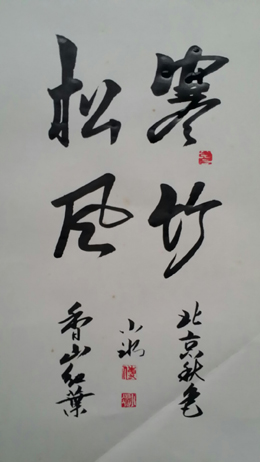 寒竹
松风
北京秋色
香山红叶
小冰